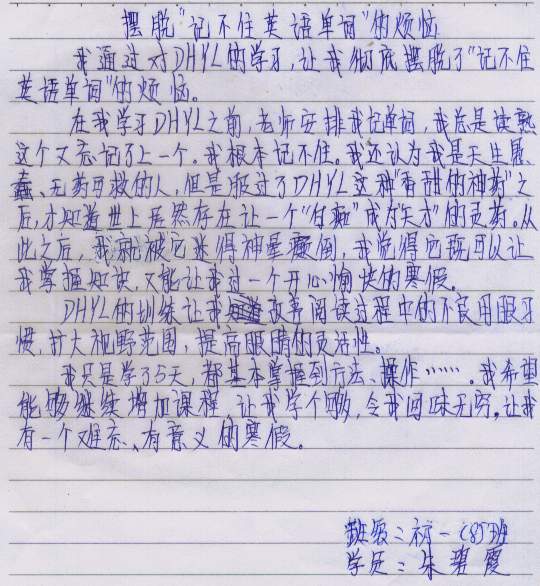 摆脱"记不住英语单词"的烦恼
我通过对DHYL的学习,让我彻底摆脱了"记不住
英语单词"的烦恼。
在我学习DHYL之前,老师安排我记单词,我总是读熟
这个又忘记了上一个。我根本记不住。我还认为我是天生愚、
蠢、无药可救的人,但是服过了DHYL这种"香甜的神药"之
后,才知道世上居然存在让一个"白痴"成为"天才"的灵药。从
此之后,我就被它迷得神星癫倒,我觉得它既可以让
我掌握知识,又能让我过一个开心愉快的寒假。
DHYL的训练让我改变阅读过程中的不良用眼习
惯,扩大视野范围,提高眼睛的灵活性。
我只是学35天,都基本掌握到方法、操作……。我希望
能够继续增加课程,让我学个够,令我回味无穷。让我
有一个难忘、有意义的寒假。
班级:初一(8)班
学员:朱碧霞